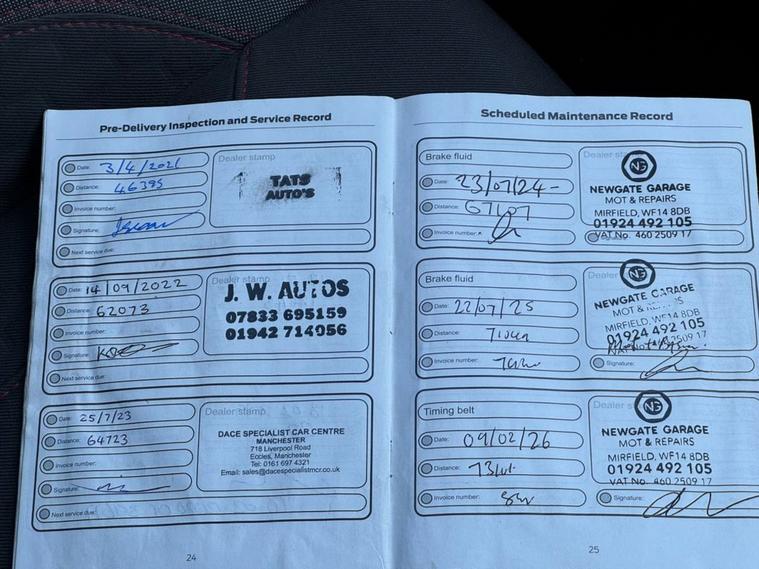 Pre-Delivery Inspection and Service Record
Date: 3/4/2021
Distance: 46395
Invoice number:
Signature:
Next service due:
Dealer stamp
TATS
AUTO'S
Date: 14/09/2022
Distance: 62073
Invoice number:
Signature:
Next service due:
Dealer stamp
J. W. AUTOS
07833 695159
01942 714056
Date: 25/7/23
Distance: 64723
Invoice number:
Signature:
Next service due:
Dealer stamp
DACE SPECIALIST CAR CENTRE
MANCHESTER
718 Liverpool Road
Eccles, Manchester
Tel: 0161 697 4321
Email: sales@dacespecialistmcr.co.uk
24
Scheduled Maintenance Record
Brake fluid
Date: 23/07/24
Distance:
Invoice number:
Dealer
NG
NEWGATE GARAGE
MOT & REPAIRS
MIRFIELD, WF14 8DB
01924 492 105
VAT No. 460 2509 17
Brake fluid
Date: 22/07/25
Distance:
Invoice number:
Dealer
NG
NEWGATE GARAGE
MOT &
MIRFIELD, WF14 8DB
01924 492 105
Signature:
Timing belt
Date: 09/02/26
Distance:
Invoice number:
Dealer
NG
NEWGATE GARAGE
MOT & REPAIRS
MIRFIELD, WF14 8DB
01924 492 105
VAT No. 460 2509 17
Signature:
25